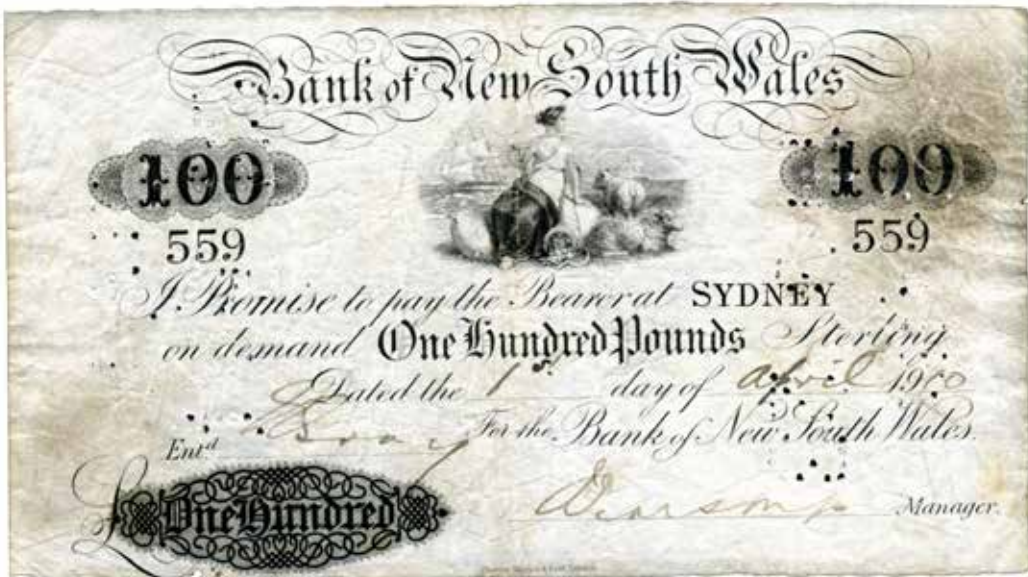 Bank of New South Wales
100 100
559 559
I Promise to pay the Bearer at SYDNEY
on demand One Hundred Pounds Sterling
Dated the 1st day of April 1900
Ent.d For the Bank of New South Wales.
£ One Hundred Manager.